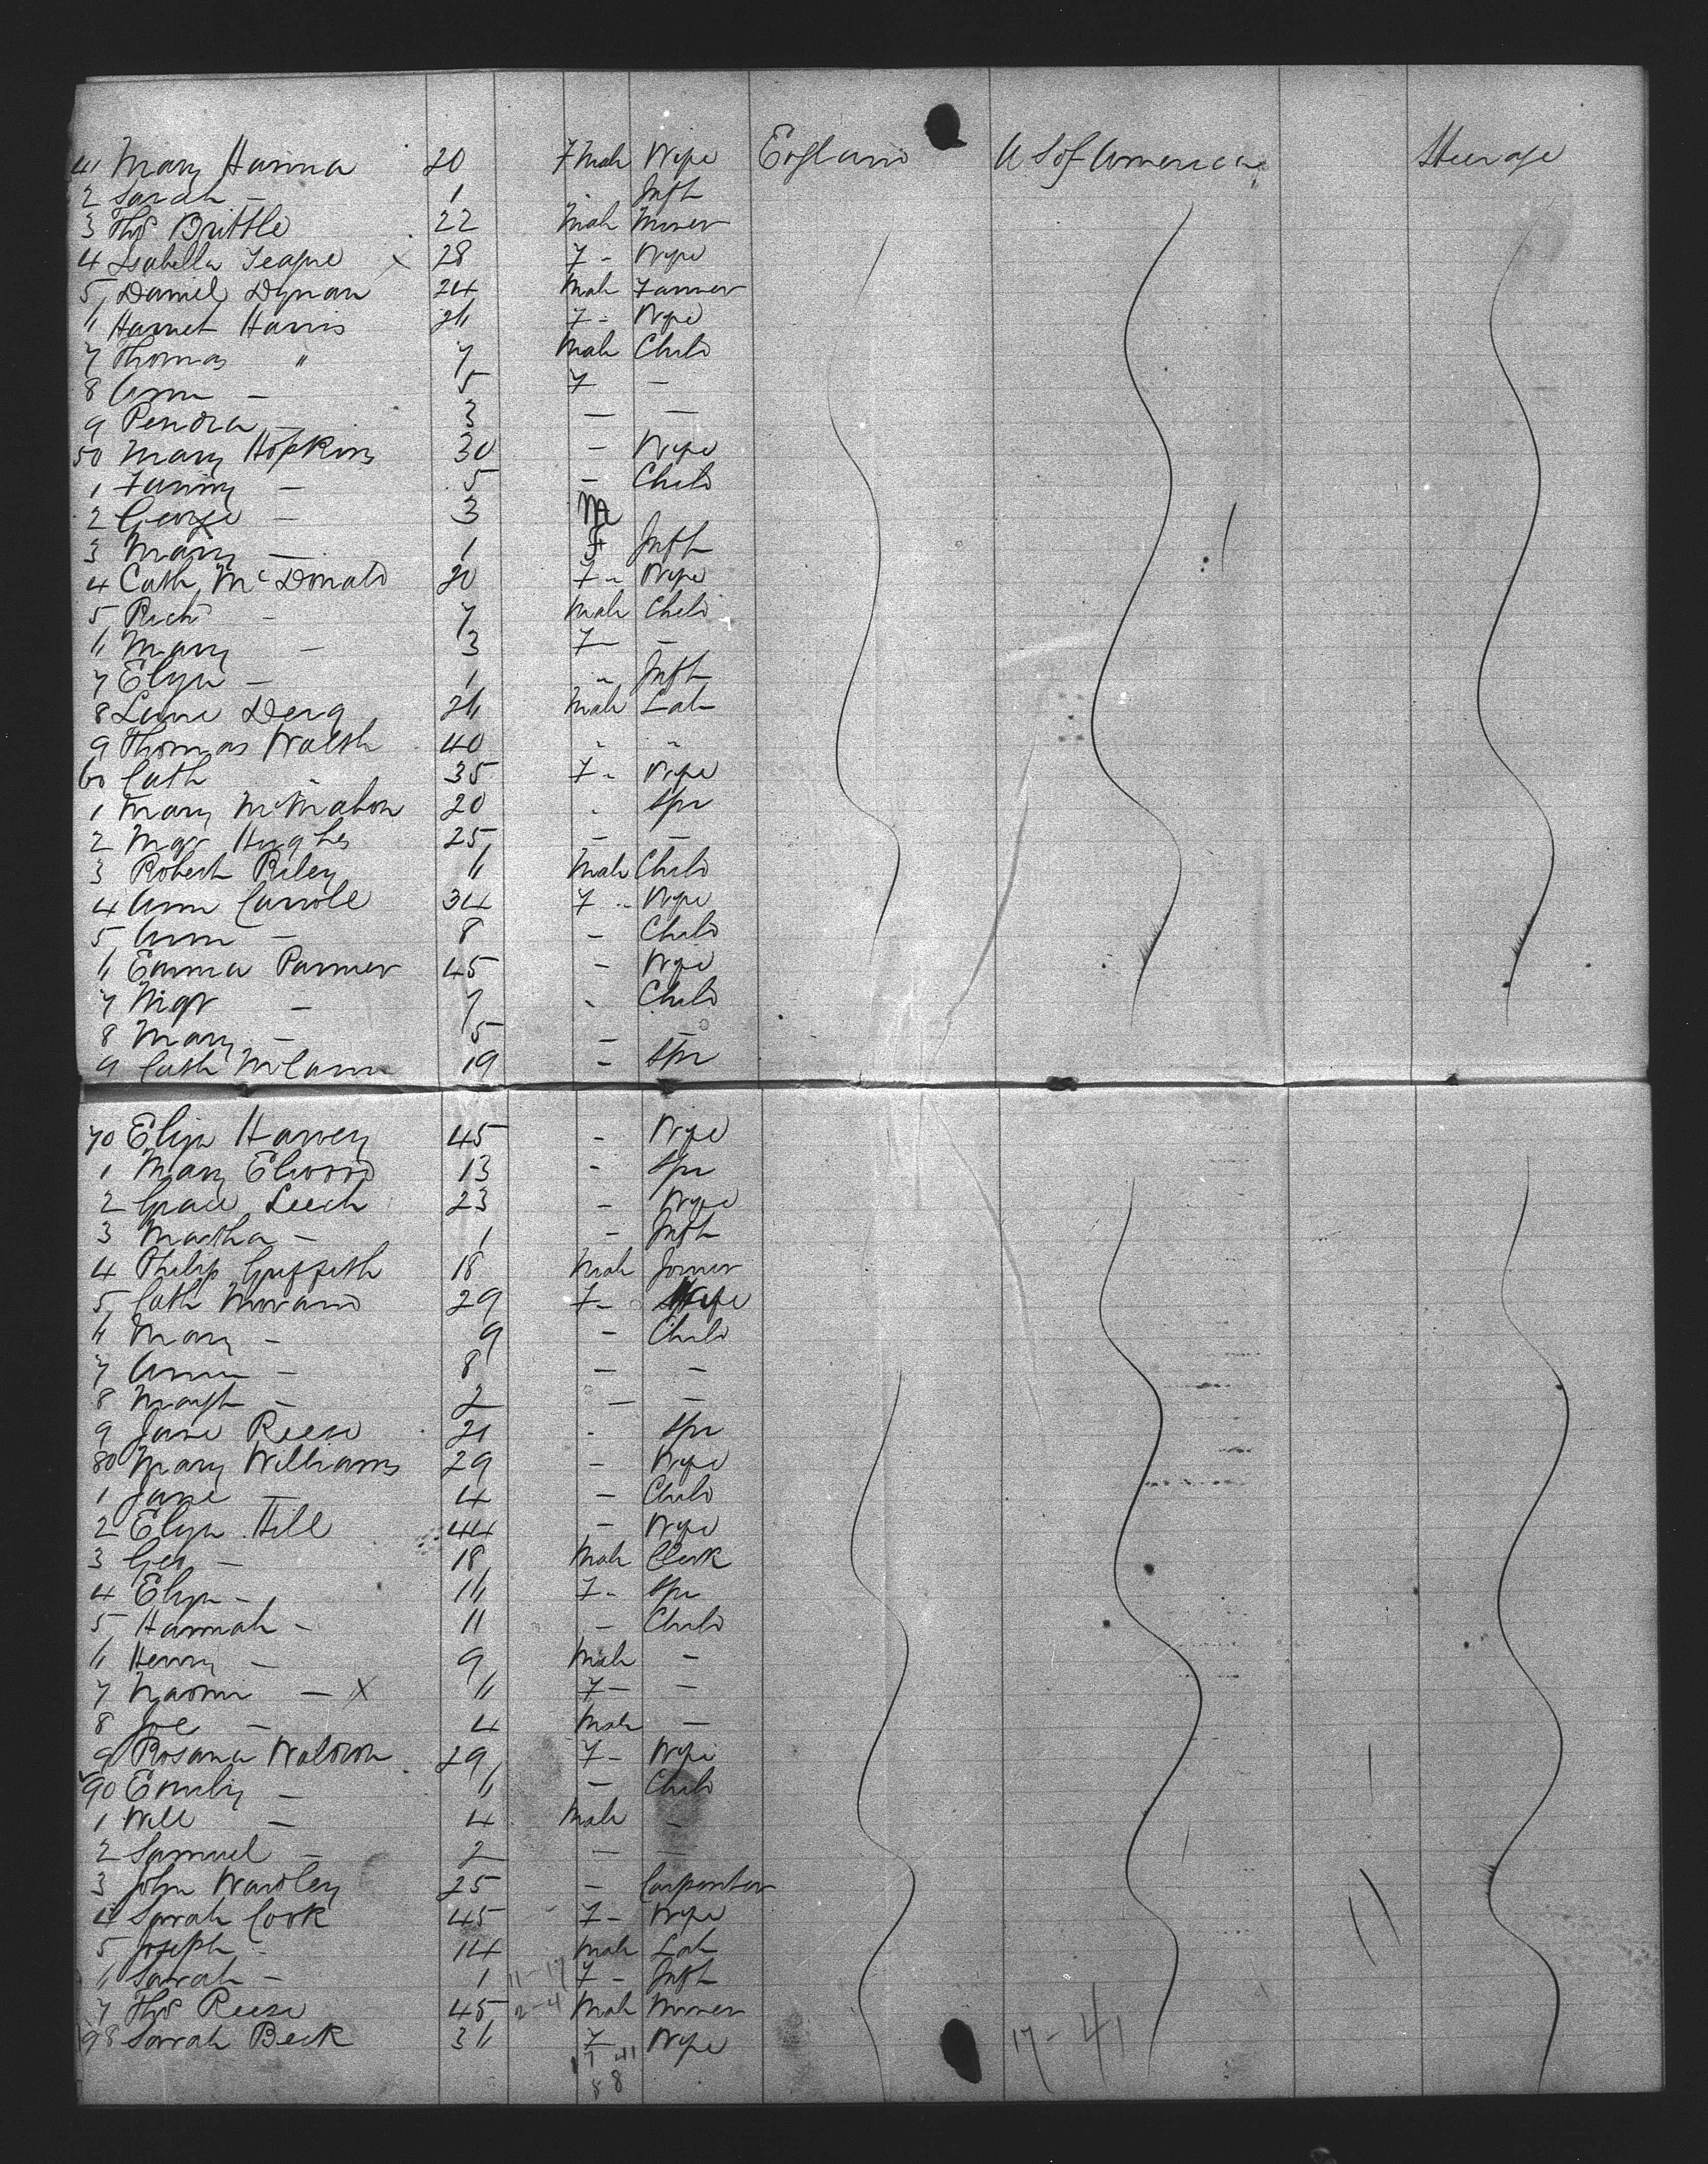 41 Mary Hanna 20 Fmale Wife England U S of America Steerage
2 Sarah - 1 " Inft
3 Thos Brittle 22 Male Miner
4 Isabella Teague x 28 F - Wife
5 Daniel Dynan 24 Male Farmer
6 Harriet Harris 26 F - Wife
7 Thomas " 7 Male Child
8 Ann - 5 F -
9 - 3 - -
50 Mary Hopkins 30 - Wife
1 Fanny - 5 - Child
2 George - 3 M
3 Mary - 1 F Inft
4 Cath McDonald 30 F - Wife
5 Rich - 7 Male Child
6 Mary - 3 F - -
7 Eliza - 1 " Inft
8 26 Male Lab
9 Thomas Walsh 40 " "
60 Cath " 35 F - Wife
1 Mary McMahon 20 " Spr
2 Mgr Hughes 25 - -
3 Robert Riley 6 Male Child
4 Ann Carroll 34 F " Wife
5 Ann - 8 - Child
6 Emma Parmer 45 - Wife
7 Mgr - 7 " Child
8 Mary - 5 - -
9 Cath McCann 19 - Spr
70 Eliza Harvey 45 - Wife
1 Mary Elwood 13 - Spr
2 Grace Leech 23 - Wife
3 Martha - 1 - Inft
4 Philip Griffith 18 Male Joiner
5 Cath 29 F - Wife
6 Mary - 9 - Child
7 Ann - 8 - -
8 Margt - 2 - -
9 Jane Reese 21 - Spr
80 Mary Williams 29 - Wife
1 Jane - 4 - Child
2 Eliza Hill 44 - Wife
3 Geo - 18 Male Clerk
4 Eliza - 16 F - Spr
5 Hannah - 11 - Child
6 Henry - 9 Male -
7 Naomi - x 6 F - -
8 Joe - 4 Male -
9 Rosana Waldron 29 F - Wife
90 Emily - 6 - Child
1 Will - 4 Male -
2 Samuel - 2 - -
3 John Wardley 25 - Carpenter
4 Sarah Cook 45 F - Wife
5 Joseph - 14 Male Lab
6 Sarah - 1 11-17 F - Inft
7 Thos Reese 45 2-4 Male Miner
98 Sarah Beck 36 F Wife 17-41
17 41
58